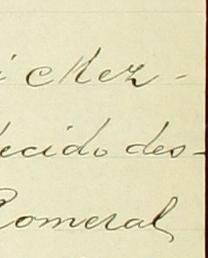 ichez-
lecido des-
Romeral